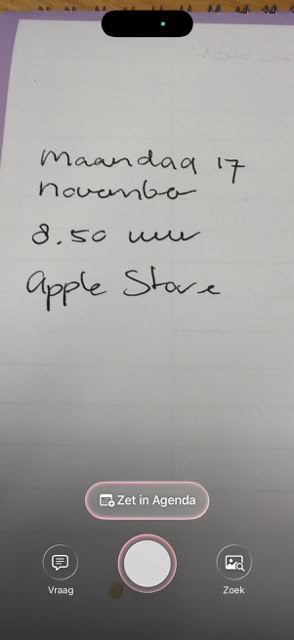 Maandag 17
november
8.50 uur
Apple Store
Zet in Agenda
Vraag
Zoek